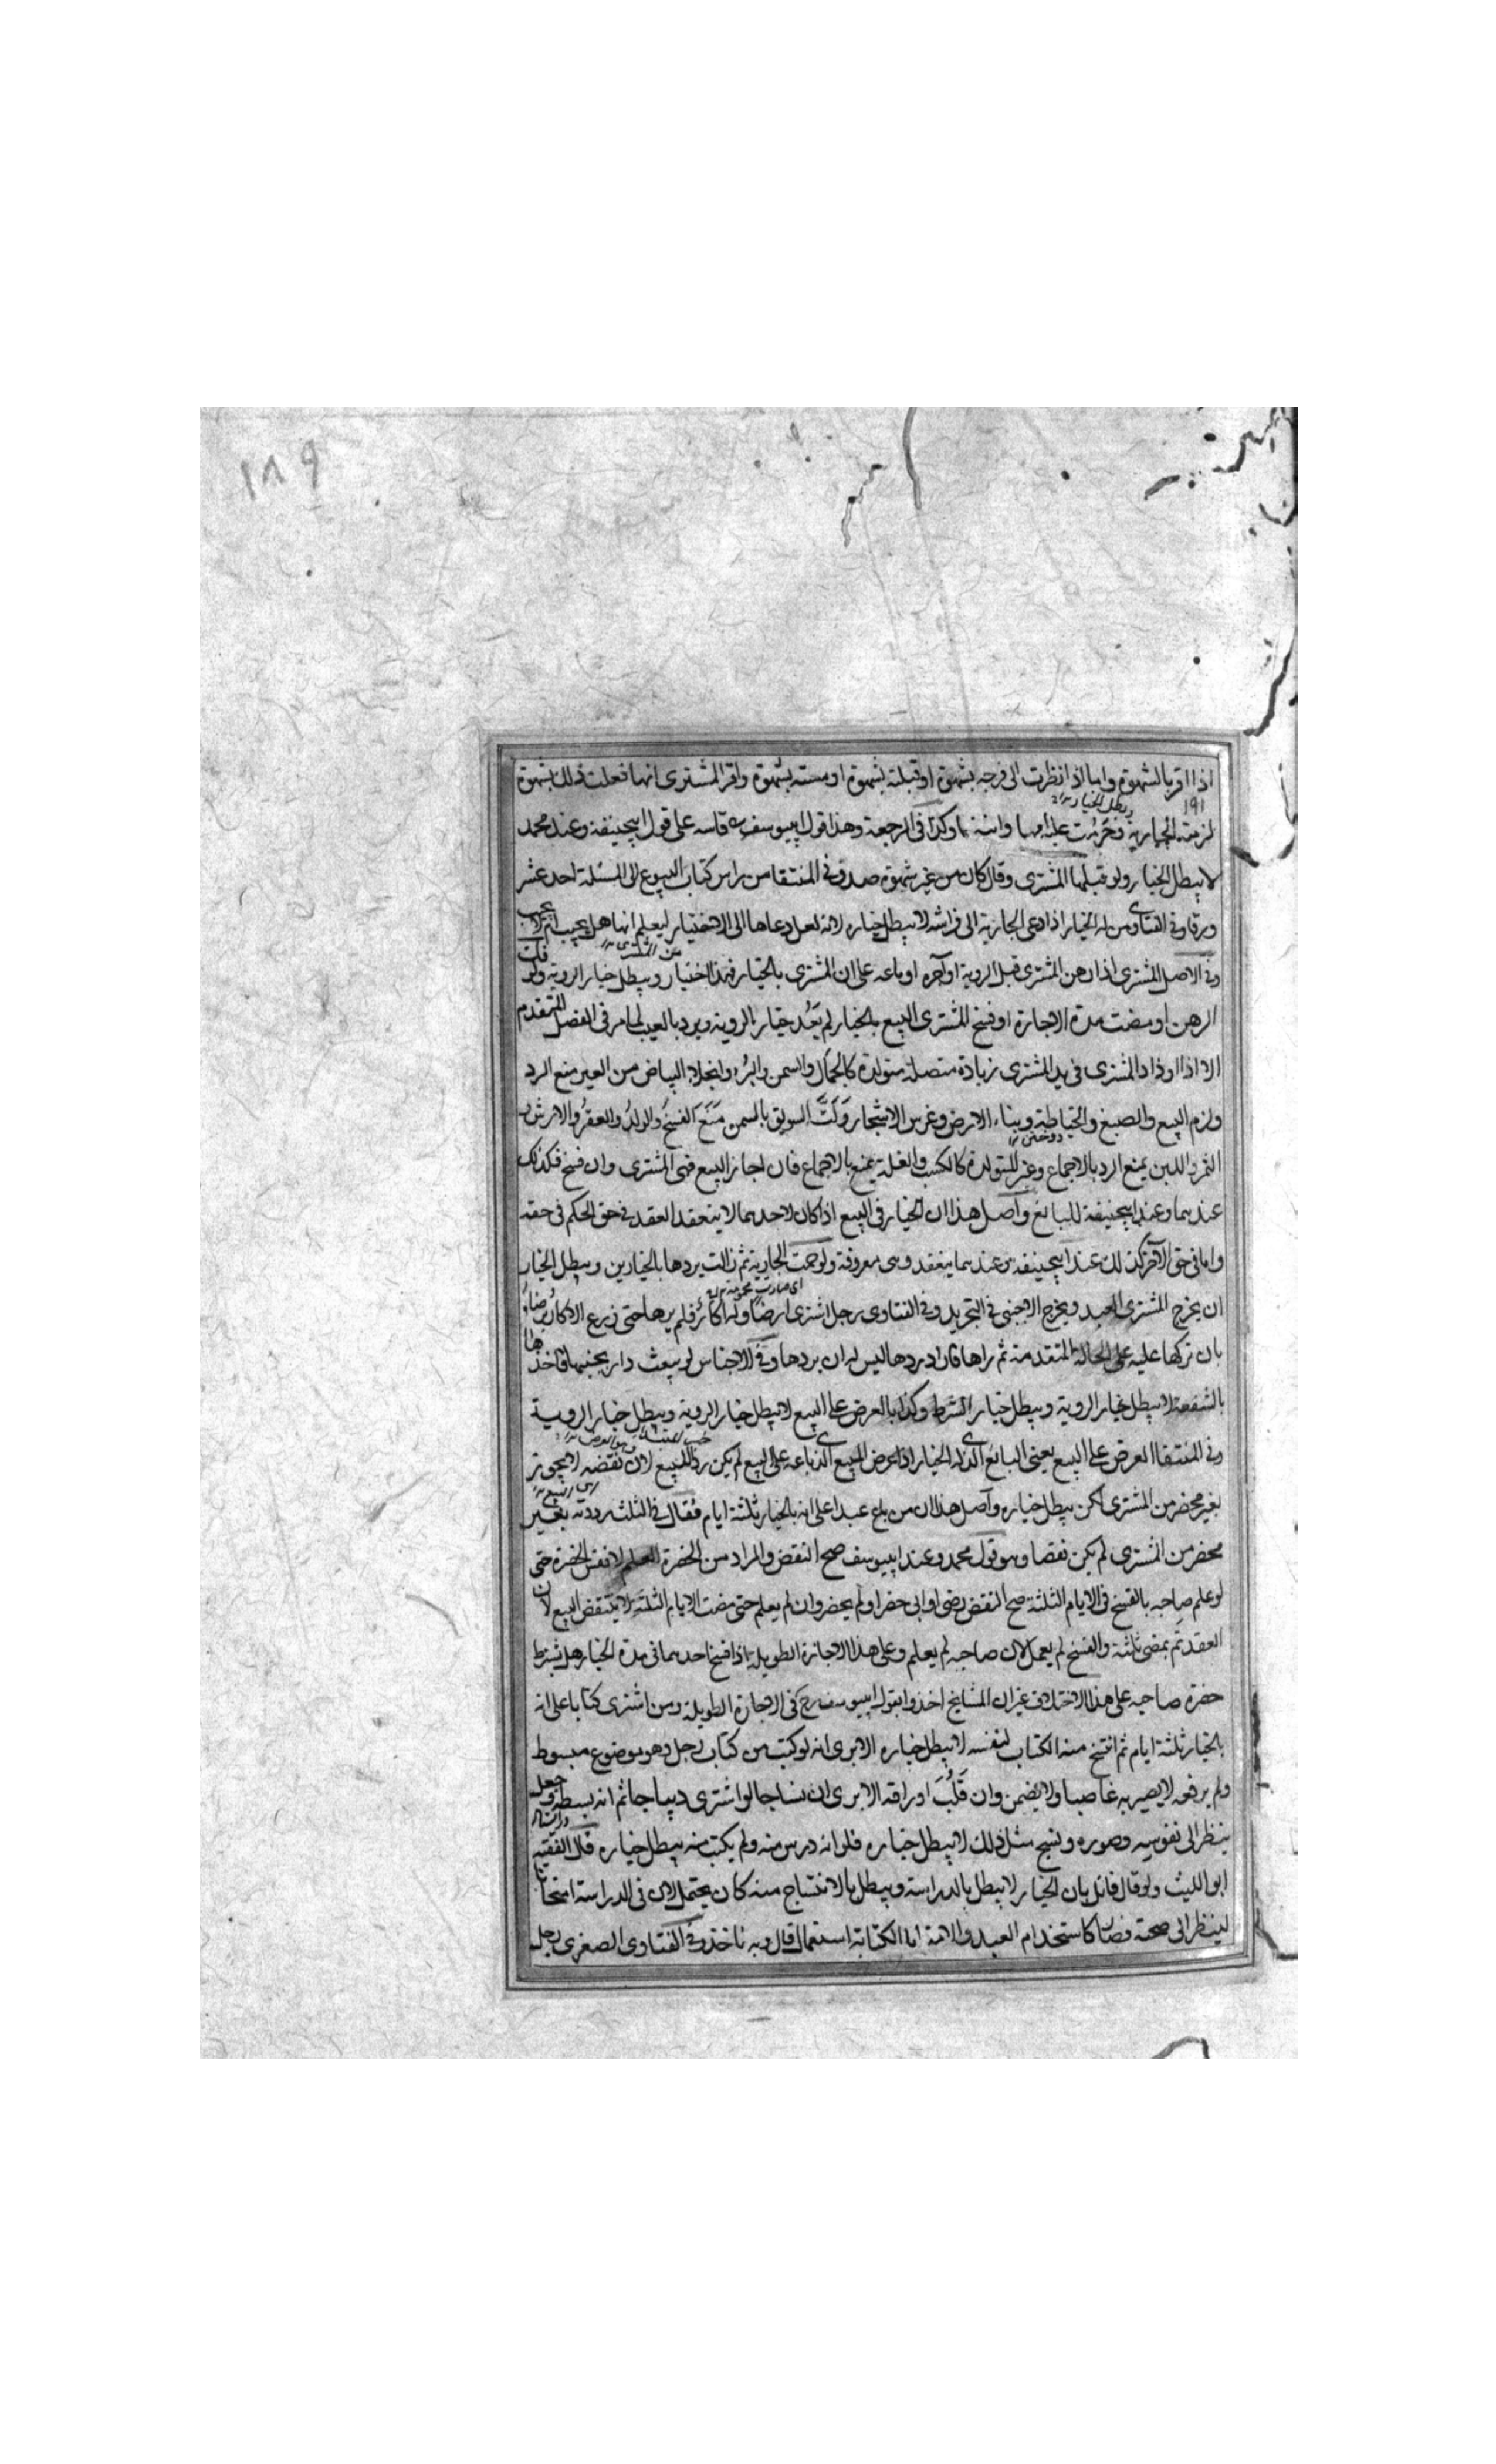 ١٨٩
اذا اقر بالشهوة واما اذا نظرت الى فرجه بشهوة او قبلته بشهوة او مسته بشهوة واقر المشترى انها فعلت ذلك بشهوة
١٩١
لزمته الجارية وحرمت عليه امها وابنتها وكذا فى الرجعة وهذا قول ابيوسف قاسه على قول ابيحنيفة وعند محمد
لا يبطل الخيار ولو قبلها المشترى وقال كان من غير شهوة صدق فى المنتقا من راس كتاب البيوع الى المسئلة احد عشر
ورقا وفى الفتاوى من له الخيار اذا دعى الجارية الى فراشه لا يبطل خياره لانه لعل دعاها الى الاختيار ليعلم انها هل يجيب ام لا
وفى الاصل المشترى اذا رهن المشترى قبل الروية او آجره او باعه على ان المشترى بالخيار فهذا اختيار ويبطل خيار الروية ولو فك
الرهن او مضت مدة الاجارة او فسخ المشترى البيع بالخيار لم يعد خيار الروية ويرد بالعيب لما مر فى الفصل المتقدم
الا اذا ازداد المشترى فى يد المشترى زيادة متصلة متولدة كالجمال والسمن والبرء وانجلاء البياض من العين منع الرد
ولزم البيع والصبغ والخياطة وبناء الارض وغرس الاشجار ولت السويق بالسمن منع الفسخ والولد والعقر والارش و
الثمر واللبن يمنع الرد بالاجماع وغير المتولدة كالكسب والغلة يمنع بالاجماع فان اجاز البيع فهى المشترى وان فسخ فكذلك
عندهما وعند ابيحنيفة للبائع وأصل هذا ان الخيار فى البيع اذا كان لاحدهما لا ينعقد العقد فى حق الحكم فى حقه
واما فى حق الآخر كذلك عند ابيحنيفة وعندهما ينعقد وهى معروفة ولو حمت الجارية ثم زالت يردها بالخيارين ويبطل الخيار
ان يخرج المشترى العبد ويخرج الاجنبى فى التجريد وفى الفتاوى رجل اشترى ارضا وله اكار فلم يرها حتى زرع الاكار برضاه
بان تركها عليه على الحالة المتقدمة ثم راها فاراد ردها ليس له ان يردها وفى الاجناس لو بيعت دار بجنبها فاخذها
بالشفعة لا يبطل خيار الروية ويبطل خيار الشرط وكذا بالعرض على البيع لا يبطل خيار الروية ويبطل خيار الروية
وفى المنتقا العرض على البيع يعنى البائع الذى له الخيار اذا عرض المبيع الذى باعه على البيع لم يكن ردا للبيع لان نقضه لا يجوز
بغير محضر من المشترى لكن يبطل خياره وأصل هذا ان من باع عبدا على انه بالخيار ثلثة ايام فقال فى الثلث رددته بغير
محضر من المشترى لم يكن نقضا وهو قول محمد وعند ابيوسف صح النقض والمراد من الحضرة العلم لا نفس الحضرة حتى
لو علم صاحبه بالفسخ فى الايام الثلثة صح النقض رضى او ابى حضر او لم يحضر وان لم يعلم حتى مضت الايام الثلثة لا ينتقض البيع لان
العقد تم بمضى ثلثة والفسخ لم يعمل لان صاحبه لم يعلم وعلى هذا الاجارة الطويلة اذا فسخ احدهما فى مدة الخيار هل يشترط
حضرة صاحبه على هذا الاختلاف غير ان المشايخ اخذوا بقول ابيوسف رح فى الاجارة الطويلة ومن اشترى كتابا على انه
بالخيار ثلثة ايام ثم انتسخ منه الكتاب لنفسه لا يبطل خياره الا يرى انه لو كتب من كتاب رجل وهو موضوع مبسوط
ولم يرفعه لا يصير به غاصبا ولا يضمن وان قلب اوراقه الا يرى ان نساجا لو اشترى ديباجا ثم انه بسطه وجعل
ينظر الى نقوشه وصوره ونسج مثل ذلك لا يبطل خياره فلو انه درس منه ولم يكتب منه يبطل خياره قال الفقيه
ابو الليث ولو قال قائل بان الخيار لا يبطل بالدراسة ويبطل بالانتساخ منه كان يحتمل لان فى الدراسة امتحانا
لينظر الى صحته فصار كاستخدام العبد والامة اما الكتابة استعمال قال وبه ناخذ وفى الفتاوى الصغرى رجل